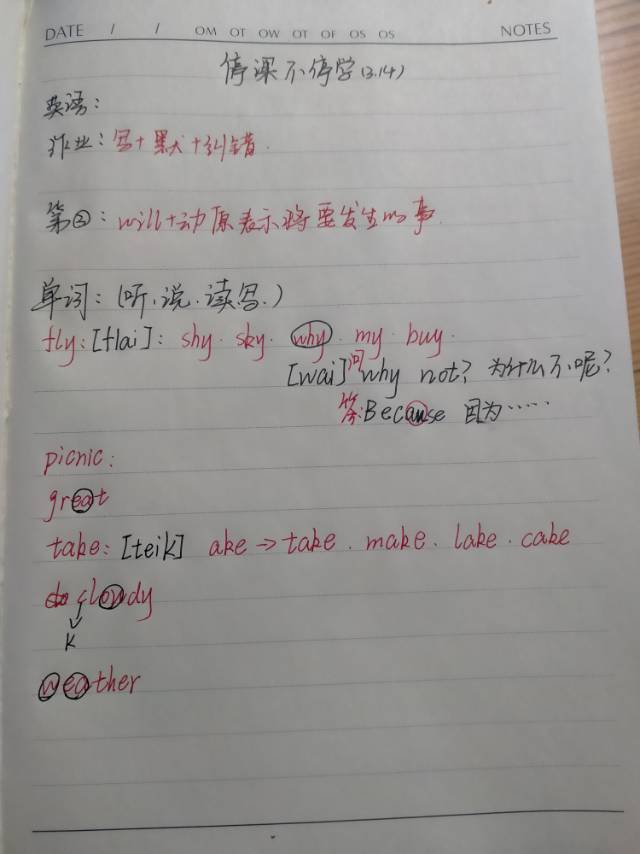 DATE / / OM OT OW OT OF OS OS NOTES
停课不停学(3.14)
英语:
作业:写+默+纠错.
第②:will+动原表示将要发生的事.
单词:(听.说.读写.)
fly:[flai]: shy. sky. why. my. buy.
[wai] 问 why not? 为什么不呢?
答:Because 因为……
picnic:
great
take:[teik] ake→take. make. lake. cake
cloudy
K
weather